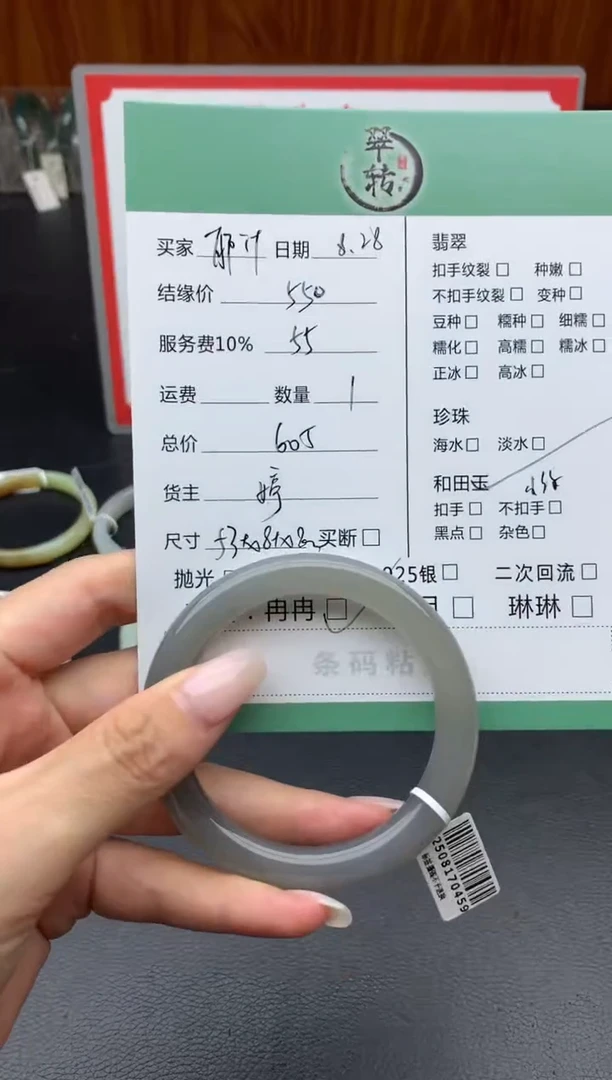 翠
转
买家 日期 8.28
结缘价 550
服务费10% 55
运费 数量 1
总价 605
货主 婷
尺寸 买断
抛光
冉冉
翡翠
扣手纹裂 种嫩
不扣手纹裂 变种
豆种 糯种 细糯
糯化 高糯 糯冰
正冰 高冰
珍珠
海水 淡水
和田玉
扣手 不扣手
黑点 杂色
925银 二次回流
琳琳
条码粘
2508170459